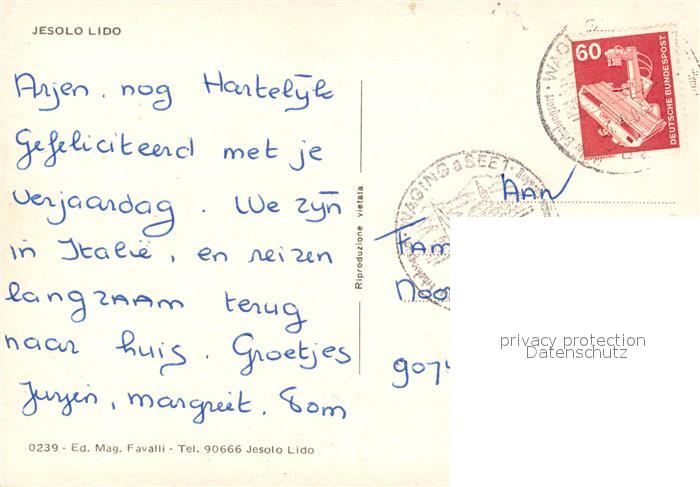 JESOLO LIDO
Arjen. nog Hartelijk
Gefeliciteerd met je
verjaardag. We zijn
in Italië, en reizen
langzaam terug
naar huis. Groetjes
Jurjen, margreet.
0239 - Ed. Mag. Favalli - Tel. 90666 Jesolo Lido
Riproduzione vietata
60
DEUTSCHE BUNDESPOST
WAGING a SEE 1
WAGI
Aan
Fam
Noo
9074
privacy protection
Datenschutz